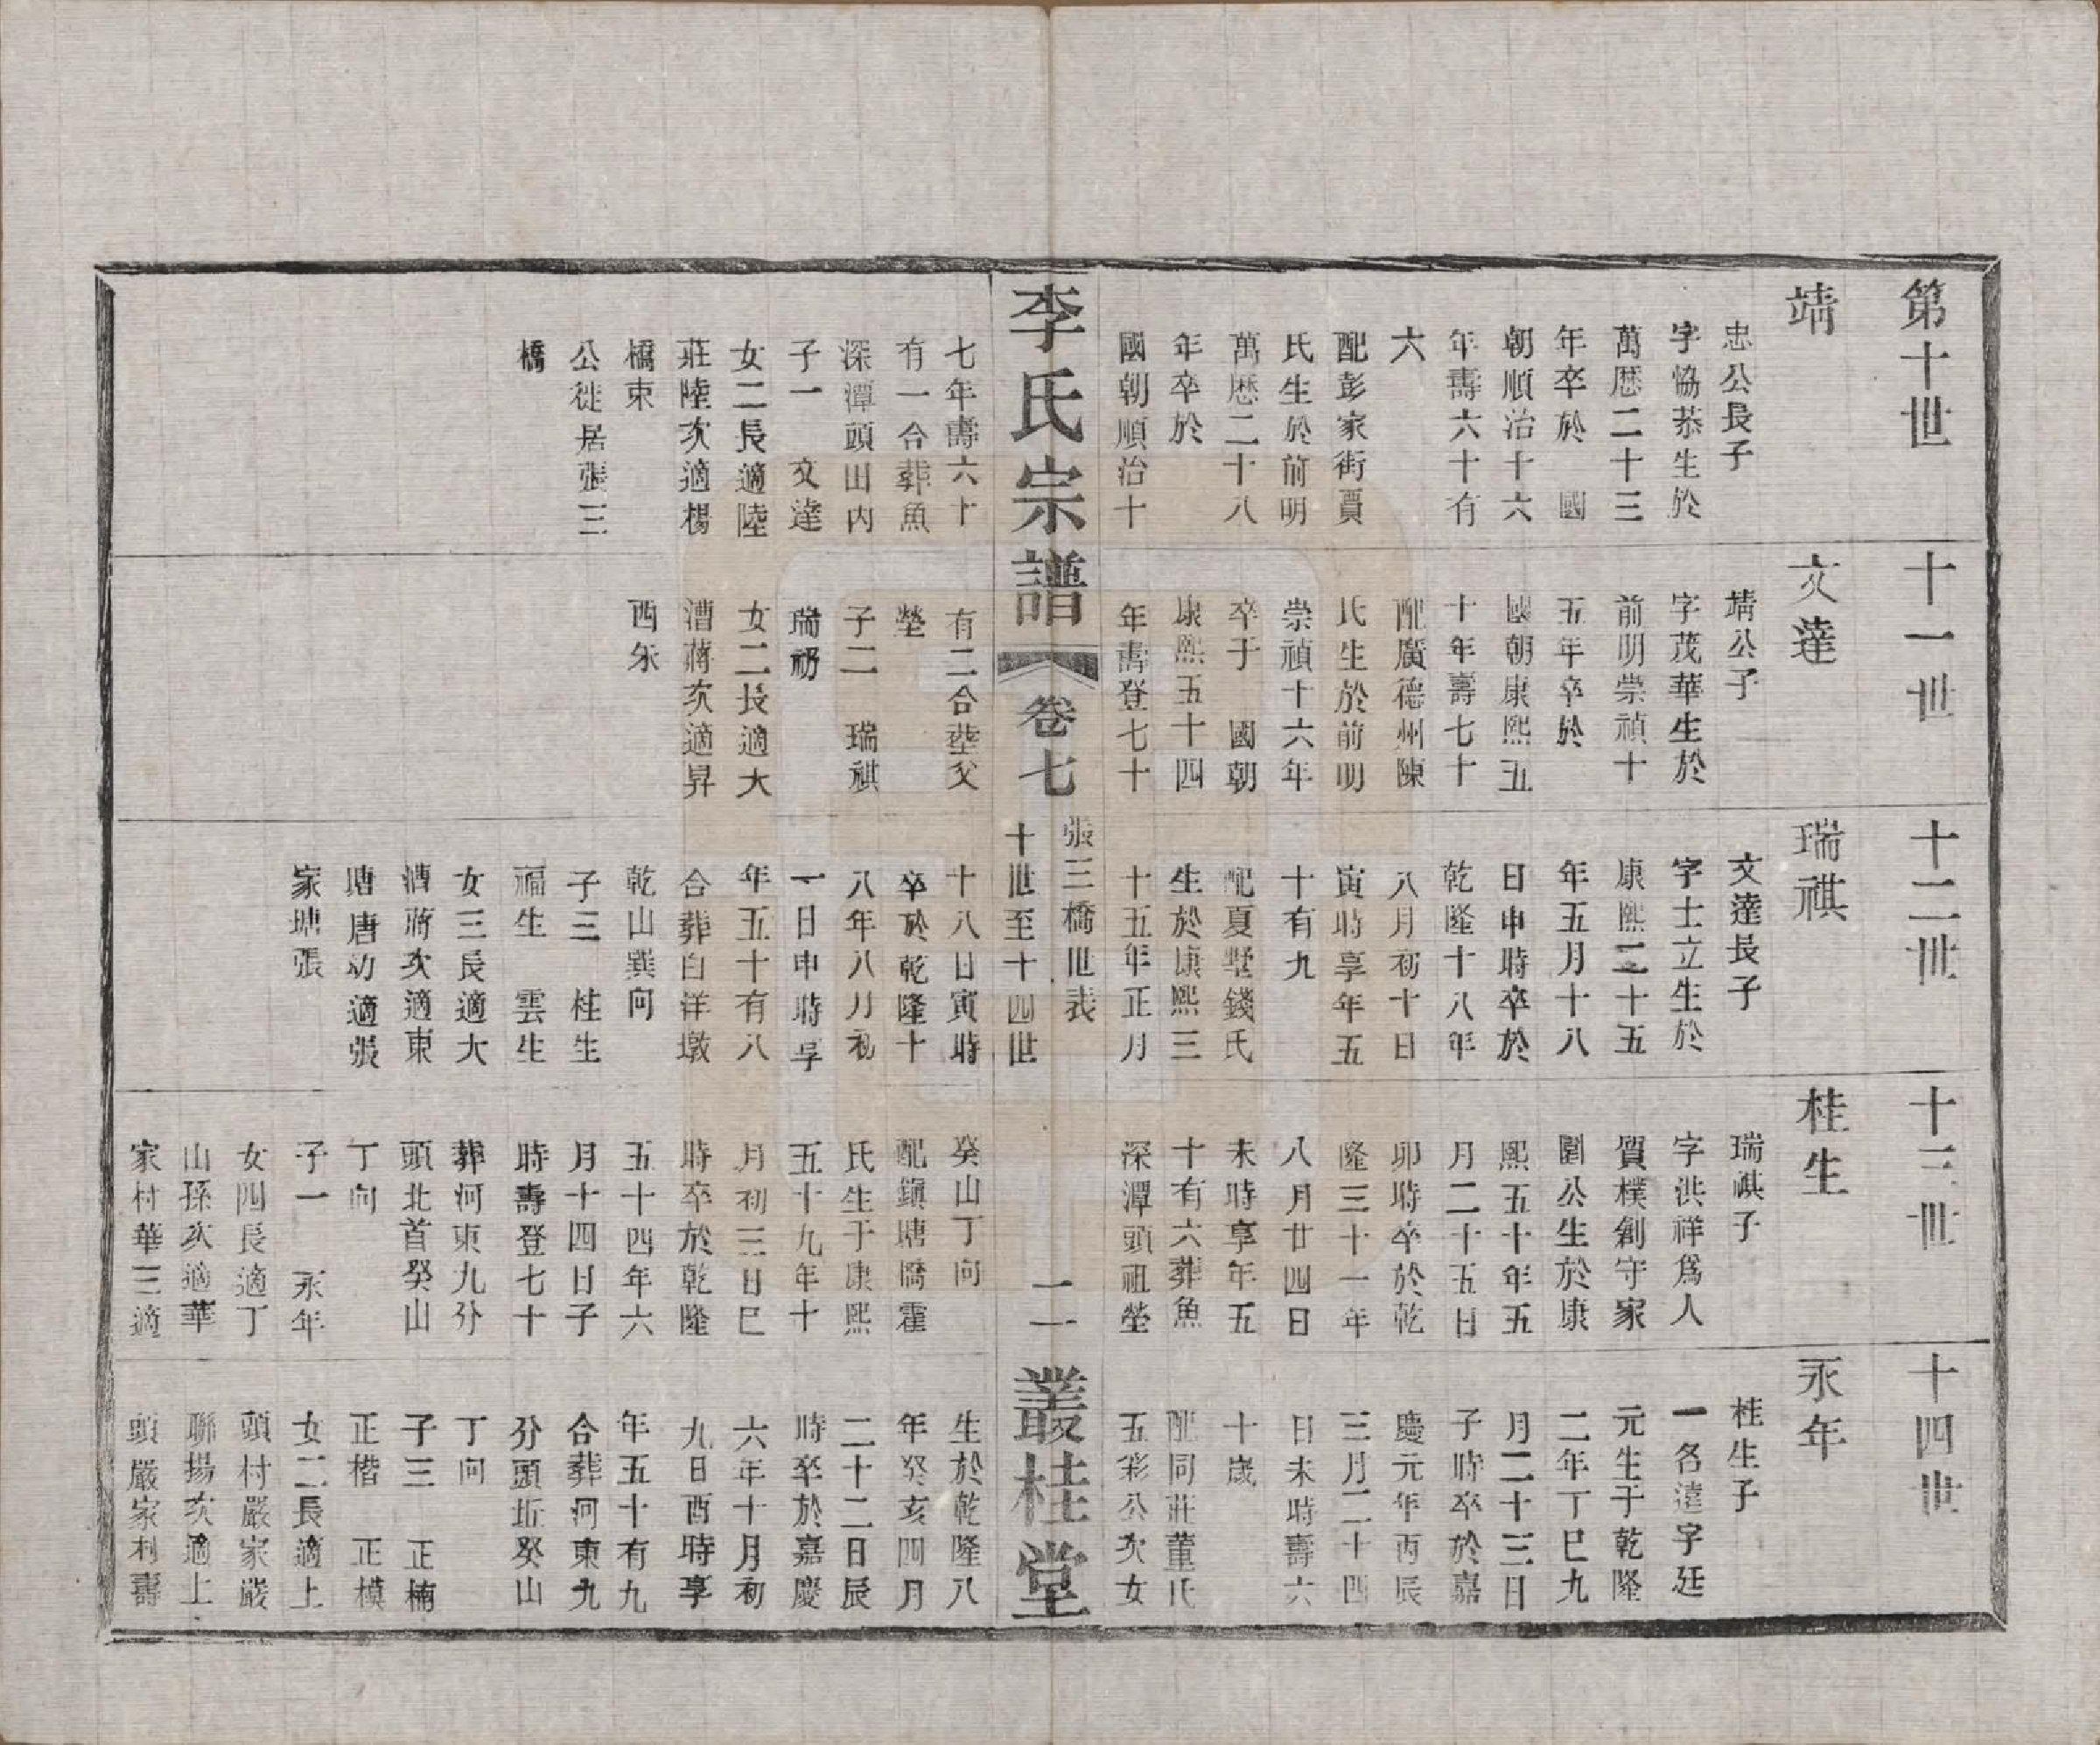 第十世
靖
忠公長子
字恊恭生於
萬厯二十三
年卒於　國
朝順治十六
年壽六十有
六
配彭家街賈
氏生於前明
萬厯二十八
年卒於
國朝順治十
七年壽六十
有一合葬魚
深潭頭田内
子一　文達
女二長適陸
莊陸次適楊
橋束
公徙居張三
橋
十一世
文達
靖公子
字茂華生於
前明崇禎十
五年卒於
國朝康熙五
十年壽七十
配廣德州陳
氏生於前明
崇禎十六年
卒于　國朝
康熙五十四
年壽登七十
有二合塟父
塋
子二　瑞祺
瑞礽
女二長適大
漕蔣次適昇
西朱
十二世
瑞祺
文達長子
字士立生於
康熙二十五
年五月十八
日申時卒於
乾隆十八年
八月初十日
寅時享年五
十有九
配夏墅錢氏
生於康熙三
十五年正月
十八日寅時
卒於乾隆十
八年八月初
一日申時享
年五十有八
合葬白洋墩
乾山巽向
子三　桂生
福生　雲生
女三長適大
漕蔣次適東
塘唐幼適張
家塘張
十三世
桂生
瑞祺子
字洪祥爲人
質樸創守家
圍公生於康
熙五十年五
月二十五日
卯時卒於乾
隆三十一年
八月廿四日
未時享年五
十有六葬魚
深潭頭祖塋
癸山丁向
配鎭塘橋霍
氏生于康熙
五十九年十
月初三日巳
時卒於乾隆
五十四年六
月十四日子
時壽登七十
葬河東九分
頭北首癸山
丁向
子一　永年
女四長適丁
山孫次適華
家村華三適
十四世
永年
桂生子
一名達字廷
元生于乾隆
二年丁巳九
月二十三日
子時卒於嘉
慶元年丙辰
三月二十四
日未時壽六
十歲
配同莊董氏
五彩公次女
生於乾隆八
年癸亥四月
二十二日辰
時卒於嘉慶
六年十月初
九日酉時享
年五十有九
合葬河東九
分頭坵癸山
丁向
子三　正楠
正楷　正模
女二長適上
頭村嚴家嚴
聯揚次適上
頭嚴家利壽
李氏宗譜
卷七
張三橋世表
十世至十四世
二
叢桂堂